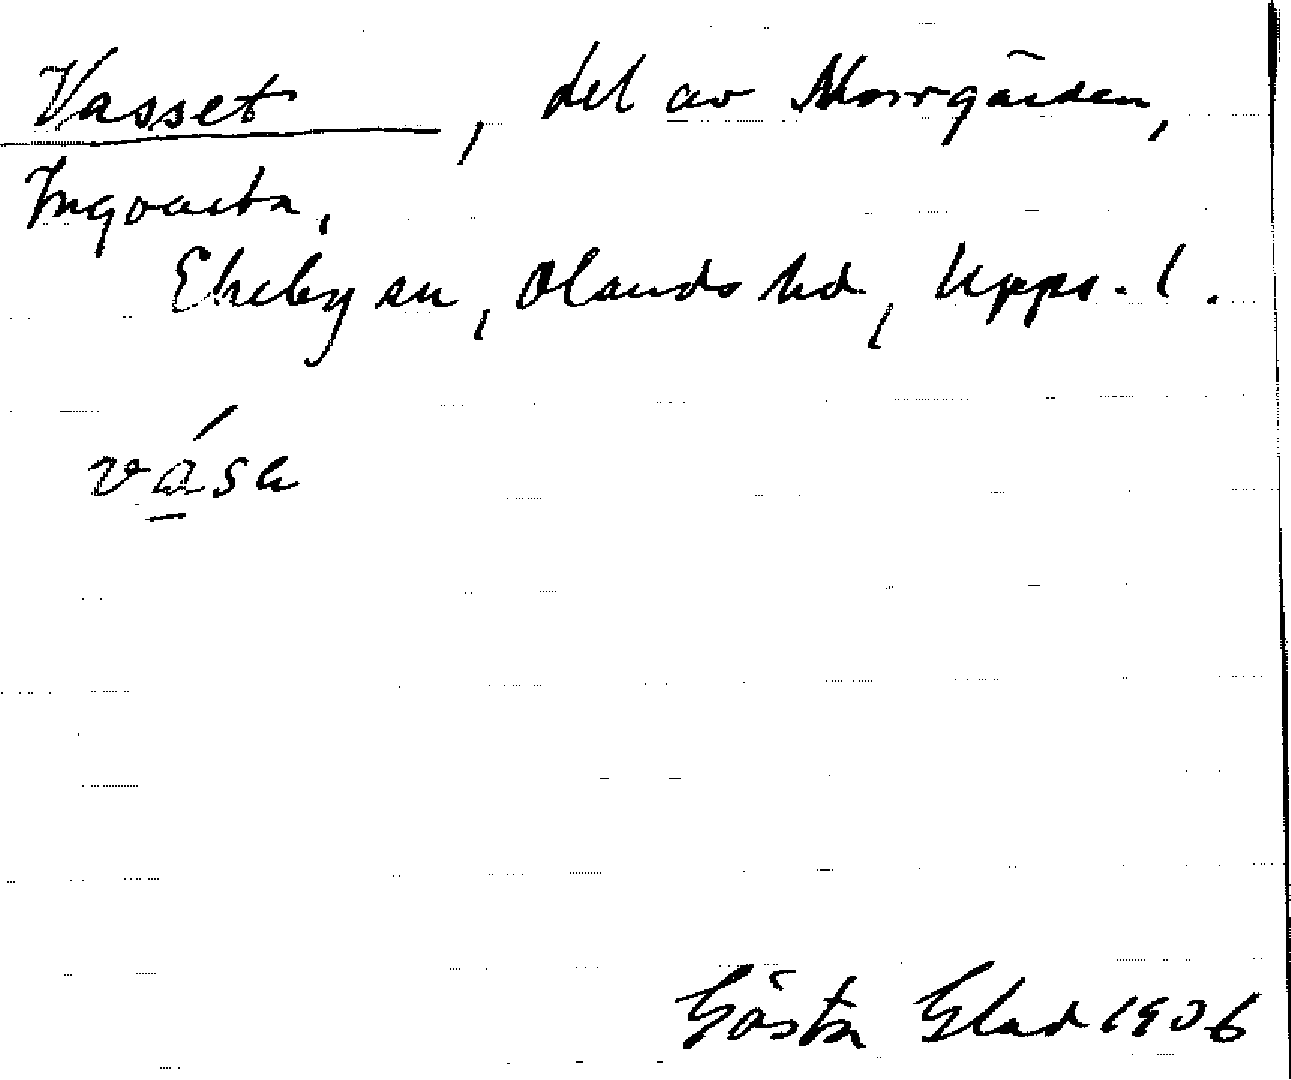 Vasset, del av Norrgården,
Ingvasta,
Ekeby sn, Olands hd, Upps. l.
vása
Gösta Glad 1906